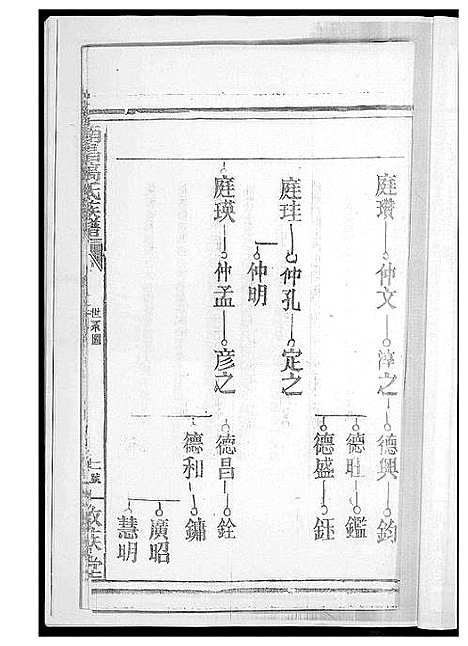 庭瓚 仲文 淳之 德興 鈞
德旺 鑑
德盛 鈺
庭珪 仲孔 定之
仲明
庭瑛 仲孟 彦之 德昌 銓
德和 鏞
廣昭
慧明
高氏族譜
世系圖
一號
敦族堂